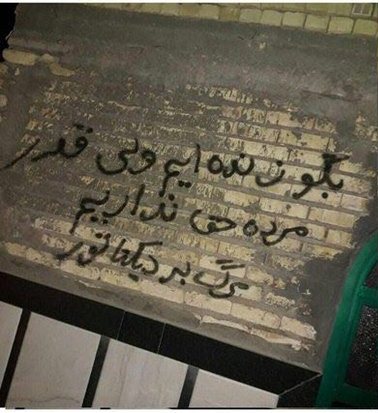 بگو زنده ایم ولی قدر
مرده حق نداریم
مرگ بر دیکتاتور